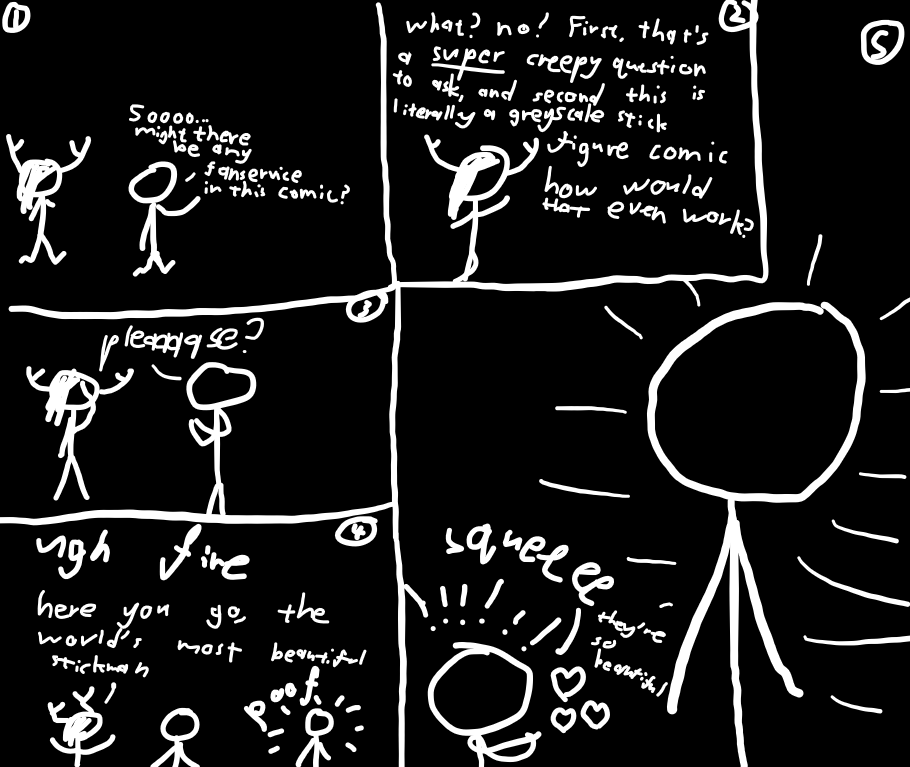 1
Soooo...
might there
be any
fanservice
in this comic?
2
what? no! First, that's
a super creepy question
to ask, and second this is
literally a greyscale stick
figure comic
how would
that even work?
3
pleaaase?
4
ugh fine
here you go, the
world's most beautiful
stickman
poof
5
squeeee
!!!!!!!
they're
so
beautiful